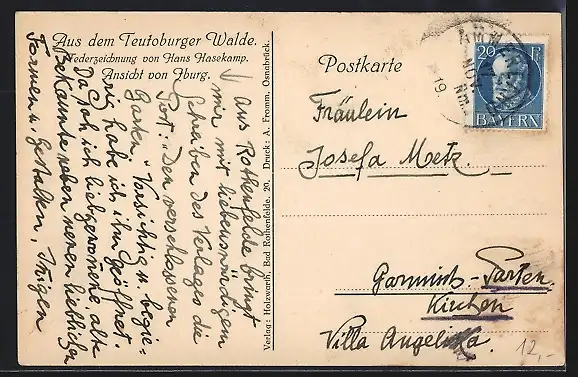 Aus dem Teutoburger Walde.
Federzeichnung von Hans Hasekamp.
Ansicht von Iburg.
Aus Rothenfelde bringt
mir mit liebenswürdigem
Schreiben des Verlages die
Post: „Den verschlossenen
Garten". Vorsichtig u. begie-
rig habe ich ihn geöffnet.
Da sah ich liebgewonnene alte
Bekannte neben neuen lieblichen
Formen u. Gestalten,
Verlag: Holzwerth, Bad Rothenfelde. 20. Druck: A. Fromm, Osnabrück.
Postkarte
20 Pf
BAYERN
NOV
Nm
19.
Fräulein
Josefa Metz.
Garmisch-Parten
Kirchen
Villa Angelika.
12,-